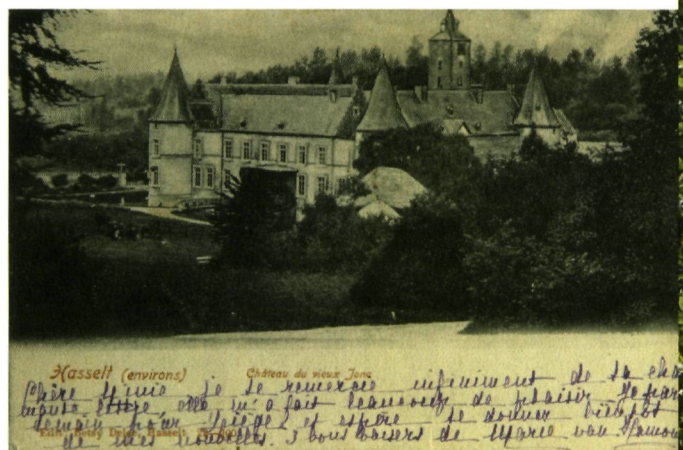 Hasselt (environs) Château du vieux Jonc
Chère je te remercie infiniment de ta cha
mante lettre elle m'a fait beaucoup de plaisir Je par
demain pour Liège et espère te donner bientôt
de mes nouvelles. 3 bons baisers de Marie van
Hasselt